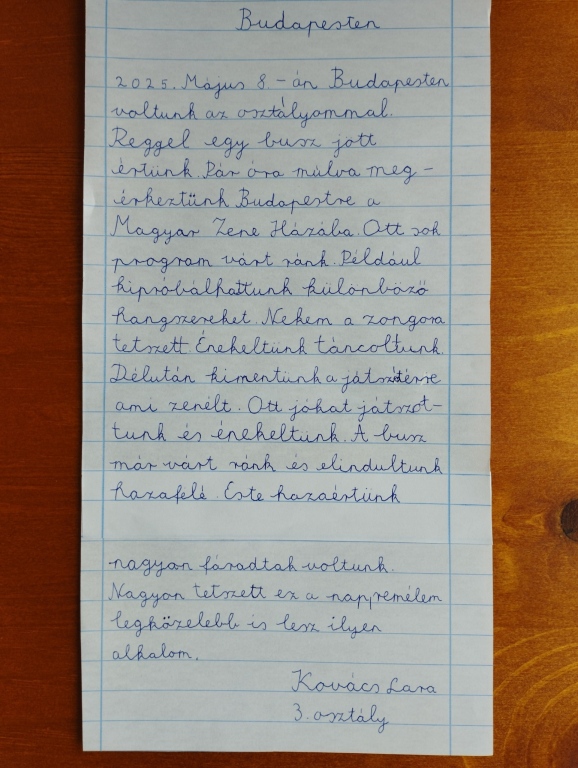 Budapesten
2025. Május 8.-án Budapesten
voltunk az osztályommal.
Reggel egy busz jött
értünk. Pár óra múlva meg-
érkeztünk Budapestre a
Magyar Zene Házába. Ott sok
program várt ránk. Például
kipróbálhattunk különböző
hangszereket. Nekem a zongora
tetszett. Énekeltünk táncoltunk.
Délután kimentünk a játszótérre
ami zenélt. Ott jókat játszot-
tunk és énekeltünk. A busz
már várt ránk és elindultunk
hazafelé. Este hazaértünk
nagyon fáradtak voltunk.
Nagyon tetszett ez a nap, remélem
legközelebb is lesz ilyen
alkalom.
Kovács Lara
3. osztály